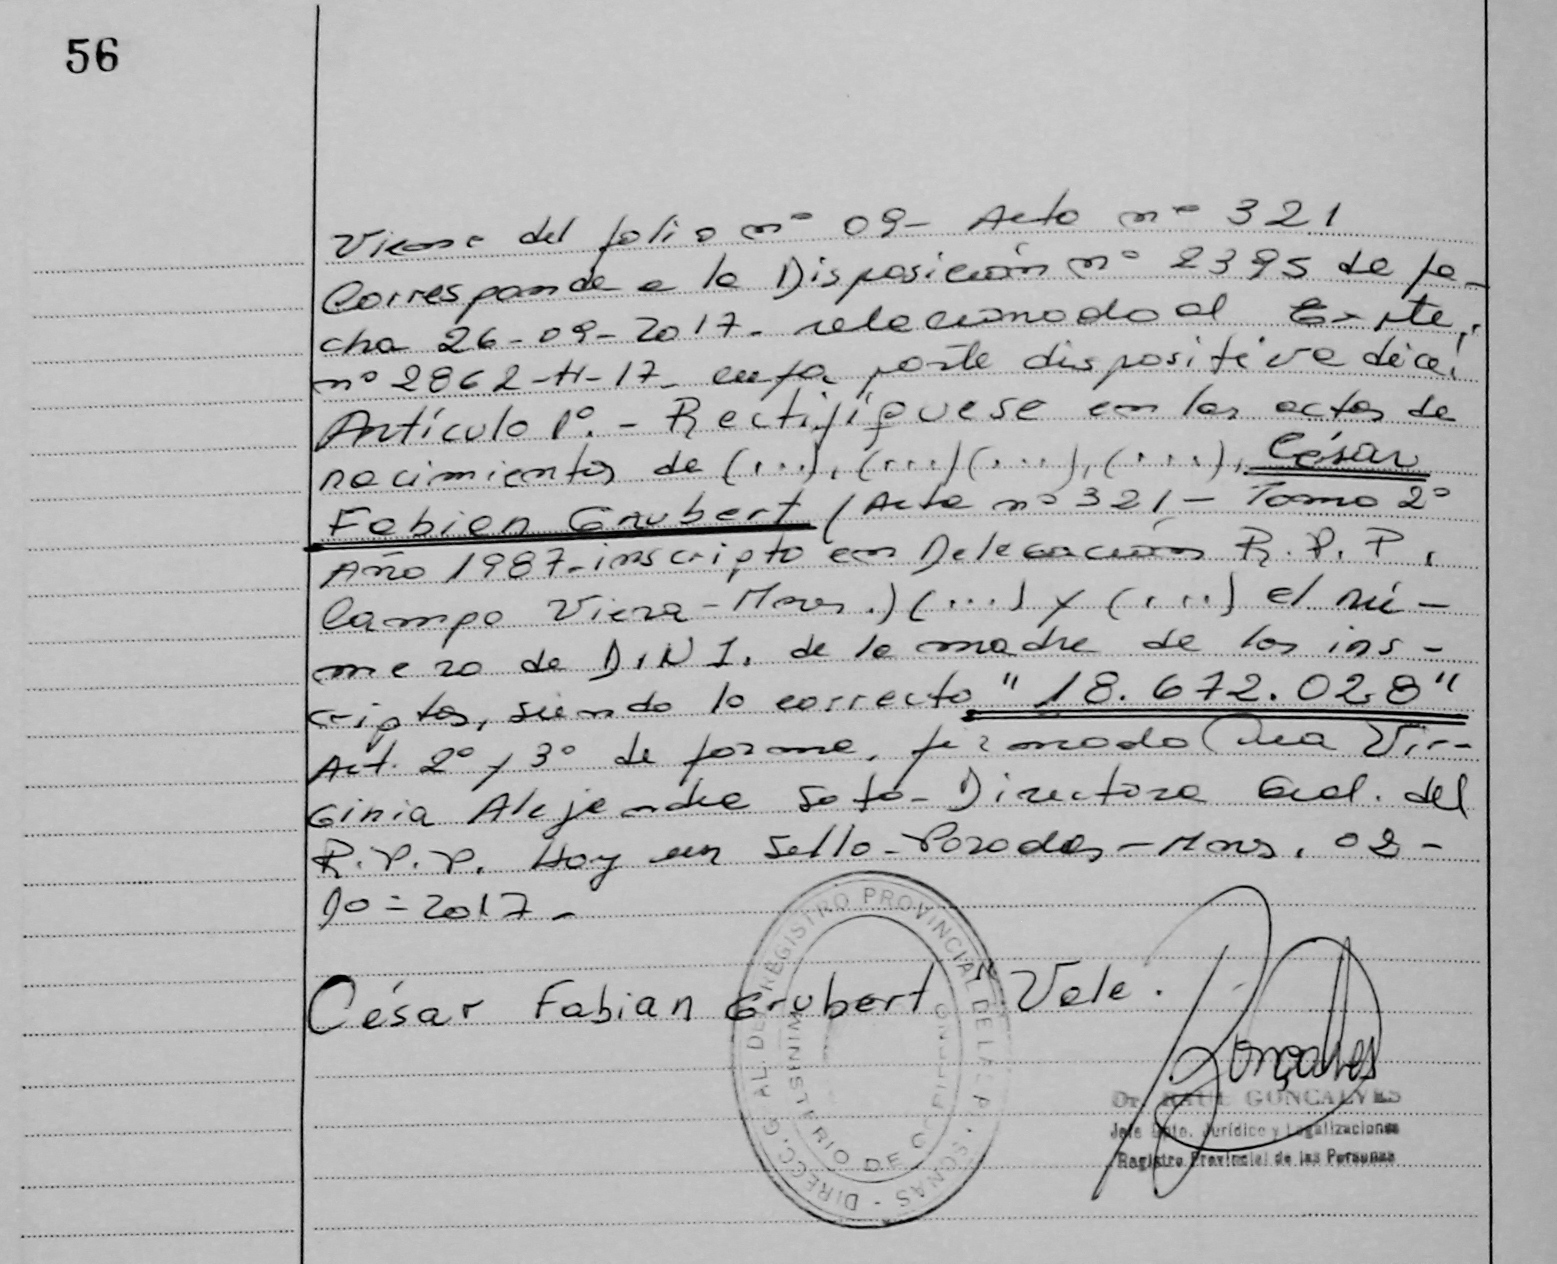 56
Viene del folio nº 09- Acto nº 321
Corresponde a la Disposición nº 2395 de fe-
cha 26-09-2017- relacionado al Expte.
nº 2862-H-17- cuya parte dispositiva dice:
Artículo 1º.- Rectifíquese en las actas de
nacimientos de (...), (...) (...), (...), César
Fabian Grubert (Acta nº 321- Tomo 2º
Año 1987-inscripto en Delegación R.P.P.
Campo Viera-Mnes.) (...) y (...) el nú-
mero de D.N.I. de la madre de los ins-
criptos, siendo lo correcto "18.672.028"
Art. 2º y 3º de forma, firmado Vir-
ginia Alejandra Soto- Directora Gral. del
R.P.P. Hay un Sello-Posadas-Mnes. 02-
10=2017-
César Fabian Grubert" Vale.
DIRECC. GRAL. DEL REGISTRO PROVINCIAL DE LAS P. - MISIONES
MINISTERIO DE GOBIERNO
Gonçalves
Dr. RAUL GONCALVES
Jefe Dpto. Jurídico y Legalizaciones
Registro Provincial de las Personas